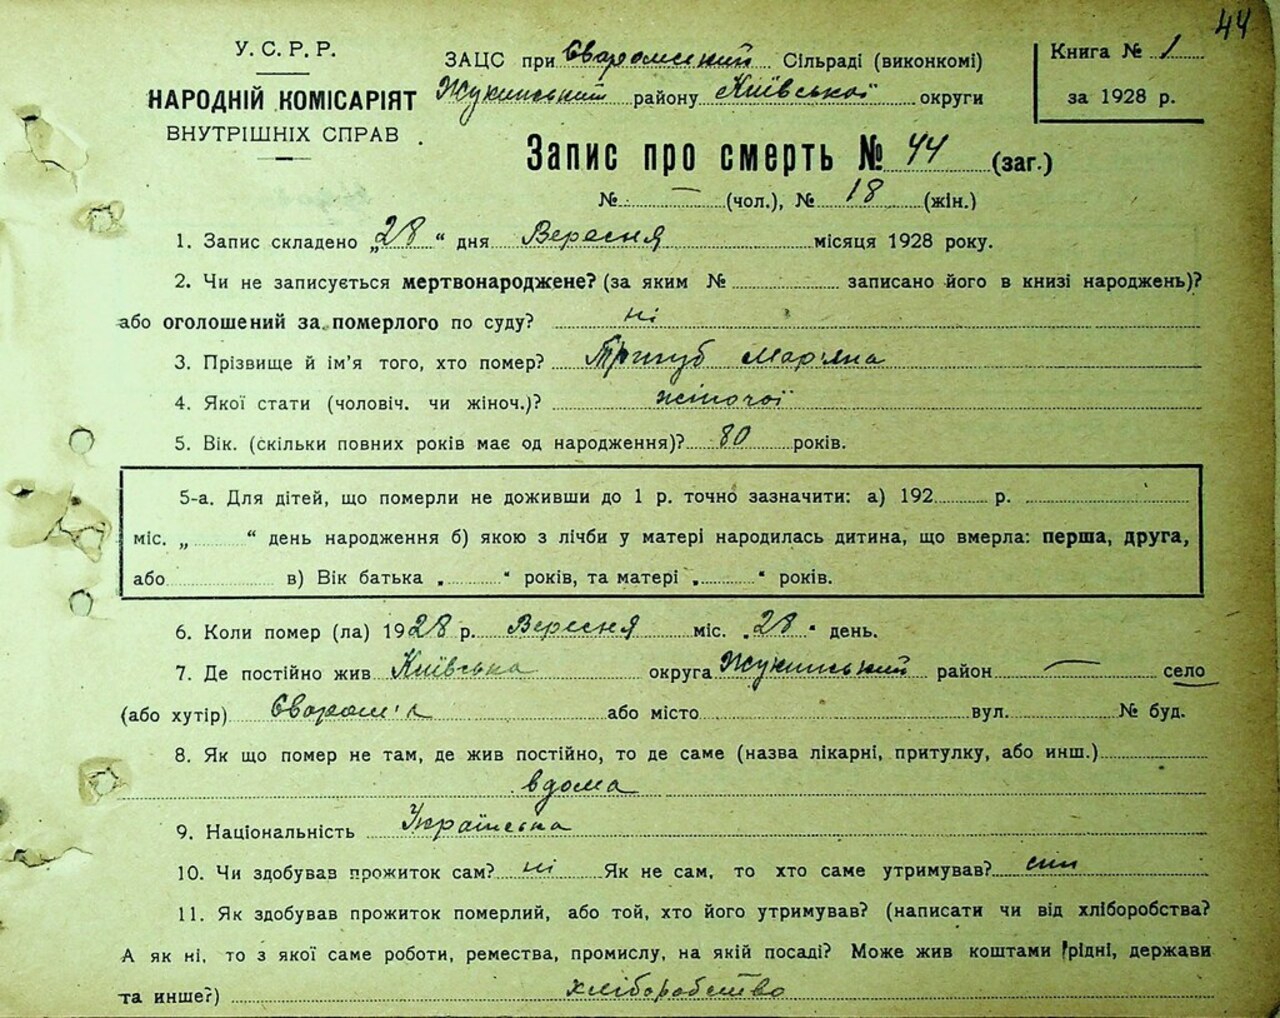 44
У. С. Р. Р.
НАРОДНІЙ КОМІСАРІЯТ
ВНУТРІШНІХ СПРАВ
ЗАЦС при Сваромський Сільраді (виконкомі)
Жукинський району Київської округи
Книга № 1
за 1928 р.
Запис про смерть № 44 (заг.)
№ — (чол.), № 18 (жін.)
1. Запис складено „28“ дня Вересня місяця 1928 року.
2. Чи не записується мертвонароджене? (за яким № записано його в книзі народжень)?
або оголошений за померлого по суду? ні
3. Прізвище й ім’я того, хто помер? Тригуб Мар'яна
4. Якої стати (чоловіч. чи жіноч.)? жіночої
5. Вік. (скільки повних років має од народження)? 80 років.
5-а. Для дітей, що померли не доживши до 1 р. точно зазначити: а) 192 р.
міс. „ “ день народження б) якою з лічби у матері народилась дитина, що вмерла: перша, друга,
або в) Вік батька „ “ років, та матері „ “ років.
6. Коли помер (ла) 1928 р. Вересня міс. „28“ день.
7. Де постійно жив Київська округа Жукинський район — село
(або хутір) Сваром'я або місто вул. № буд.
8. Як що помер не там, де жив постійно, то де саме (назва лікарні, притулку, або инш.)
вдома
9. Національність Українська
10. Чи здобував прожиток сам? ні Як не сам, то хто саме утримував? син
11. Як здобував прожиток померлий, або той, хто його утримував? (написати чи від хліборобства?
А як ні, то з якої саме роботи, ремества, промислу, на якій посаді? Може жив коштами рідні, держави
та инше?) хліборобство